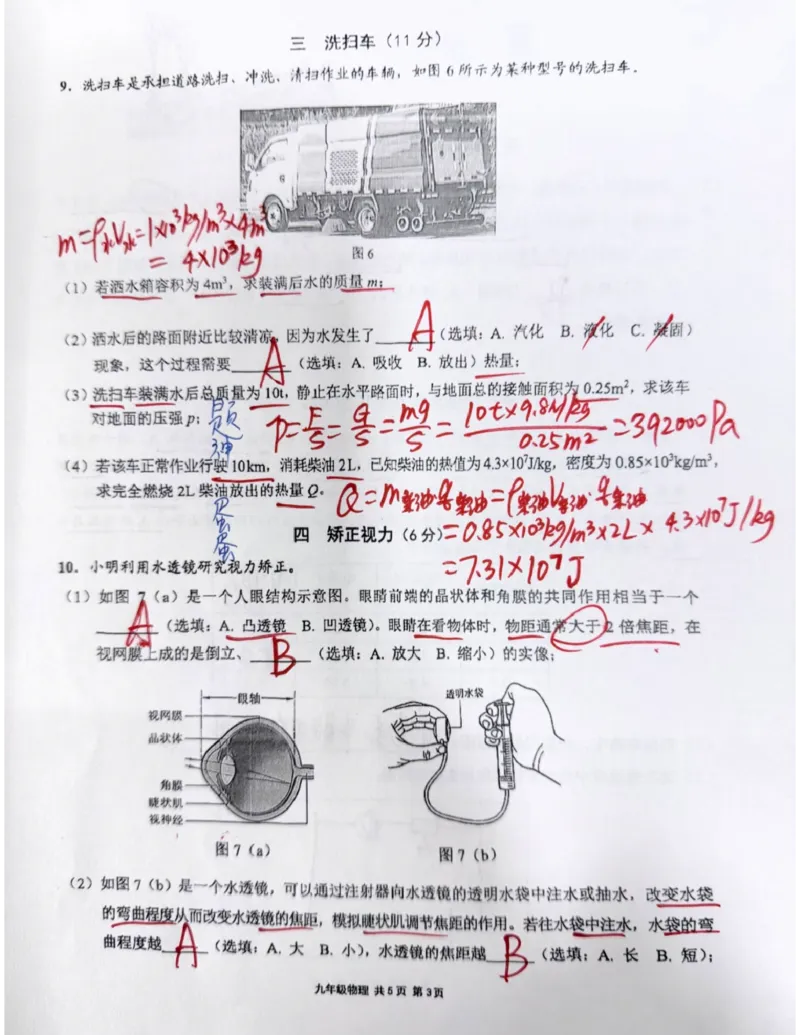 三 洗扫车（11 分）
9. 洗扫车是承担道路洗扫、冲洗、清扫作业的车辆，如图 6 所示为某种型号的洗扫车.
m=ρ水V水=1×10³kg/m³×4m³
=4×10³kg
图6
（1）若洒水箱容积为 4m³，求装满后水的质量 m；
（2）洒水后的路面附近比较清凉，因为水发生了 A （选填：A. 汽化 B. 液化 C. 凝固）
现象，这个过程需要 A （选填：A. 吸收 B. 放出）热量；
（3）洗扫车装满水后总质量为 10t，静止在水平路面时，与地面总的接触面积为 0.25m²，求该车
对地面的压强 p；
p=F/S=G/S=mg/S=10t×9.8N/kg/0.25m²=392000Pa
（4）若该车正常作业行驶 10km，消耗柴油 2L，已知柴油的热值为 4.3×10⁷J/kg，密度为 0.85×10³kg/m³，
求完全燃烧 2L 柴油放出的热量 Q。
Q=m柴油q柴油=ρ柴油V柴油·q柴油
=0.85×10³kg/m³×2L×4.3×10⁷J/kg
=7.31×10⁷J
四 矫正视力（6 分）
10. 小明利用水透镜研究视力矫正。
（1）如图 7（a）是一个人眼结构示意图。眼睛前端的晶状体和角膜的共同作用相当于一个
A （选填：A. 凸透镜 B. 凹透镜）。眼睛在看物体时，物距通常大于 2 倍焦距，在
视网膜上成的是倒立、 B （选填：A. 放大 B. 缩小）的实像；
眼轴
视网膜
晶状体
角膜
睫状肌
视神经
透明水袋
图 7（a）
图 7（b）
（2）如图 7（b）是一个水透镜，可以通过注射器向水透镜的透明水袋中注水或抽水，改变水袋
的弯曲程度从而改变水透镜的焦距，模拟睫状肌调节焦距的作用。若往水袋中注水，水袋的弯
曲程度越 A （选填：A. 大 B. 小），水透镜的焦距越 B （选填：A. 长 B. 短）；
九年级物理 共 5 页 第 3 页